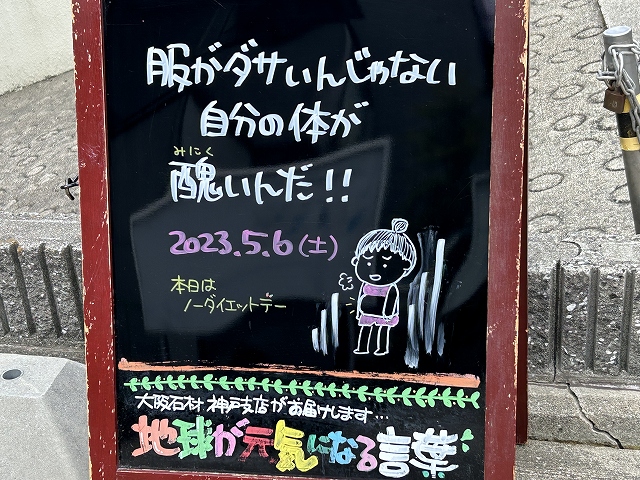 服がダサいんじゃない
自分の体が
みにく
醜いんだ!!
2023.5.6(土)
本日は
ノーダイエットデー
大阪石材 神戸支店がお届けします…
地球が元気になる言葉